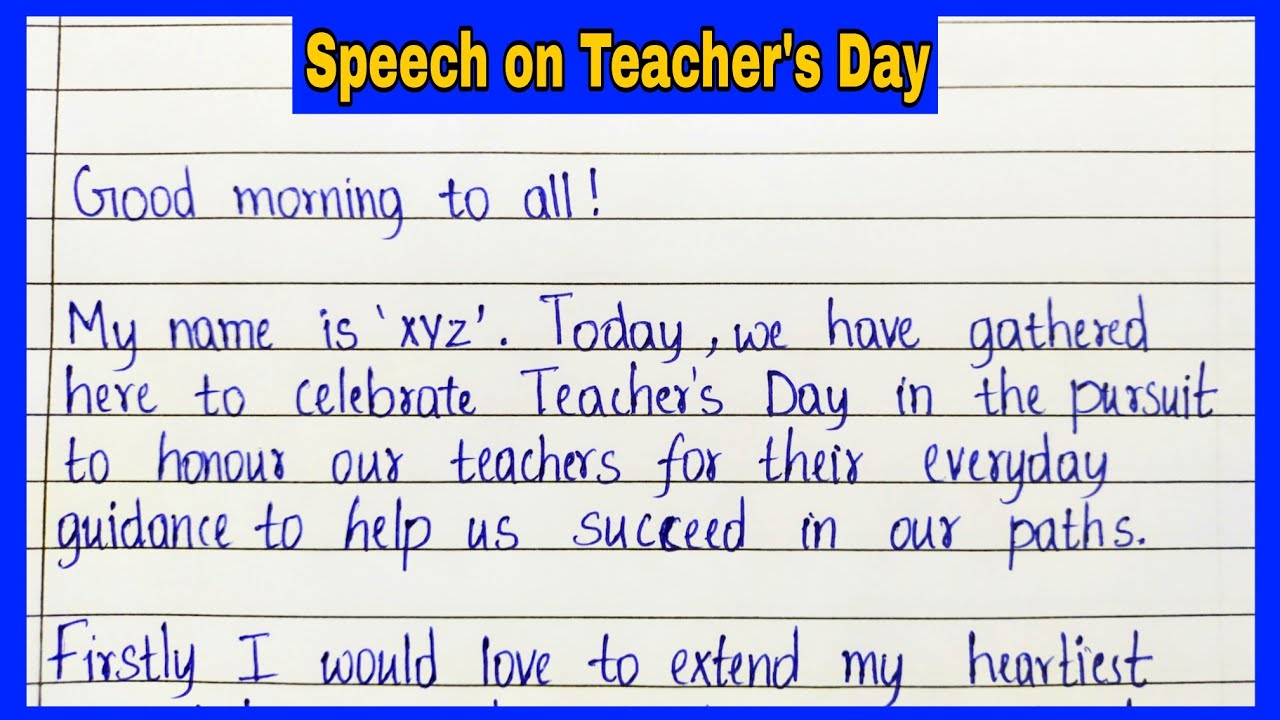 Speech on Teacher's Day
Good morning to all!
My name is 'xyz'. Today, we have gathered
here to celebrate Teacher's Day in the pursuit
to honour our teachers for their everyday
guidance to help us succeed in our paths.
Firstly I would love to extend my heartiest